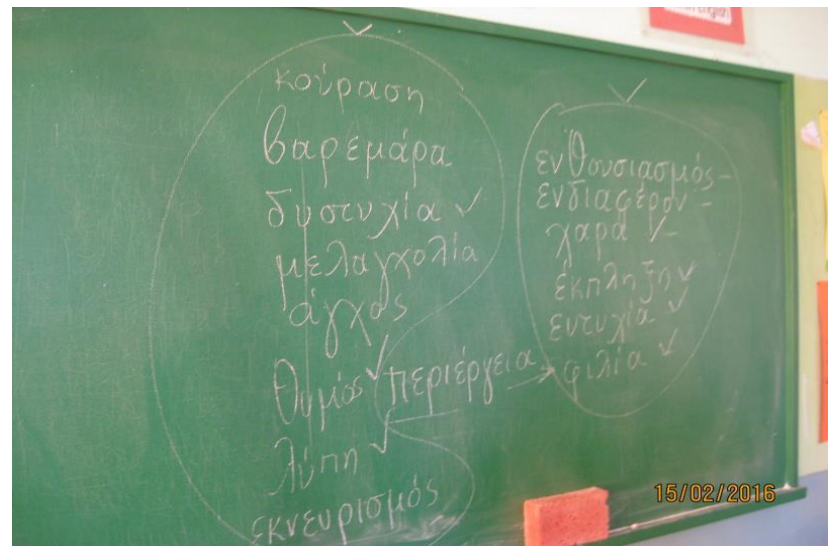 κούραση
βαρεμάρα
δυστυχία ✓
μελαγχολία
άγχος
θυμός ✓
λύπη ✓
εκνευρισμός
περιέργεια →
ενθουσιασμός –
ενδιαφέρον –
χαρά ✓ –
έκπληξη ✓
ευτυχία ✓
φιλία ✓
15/02/2016